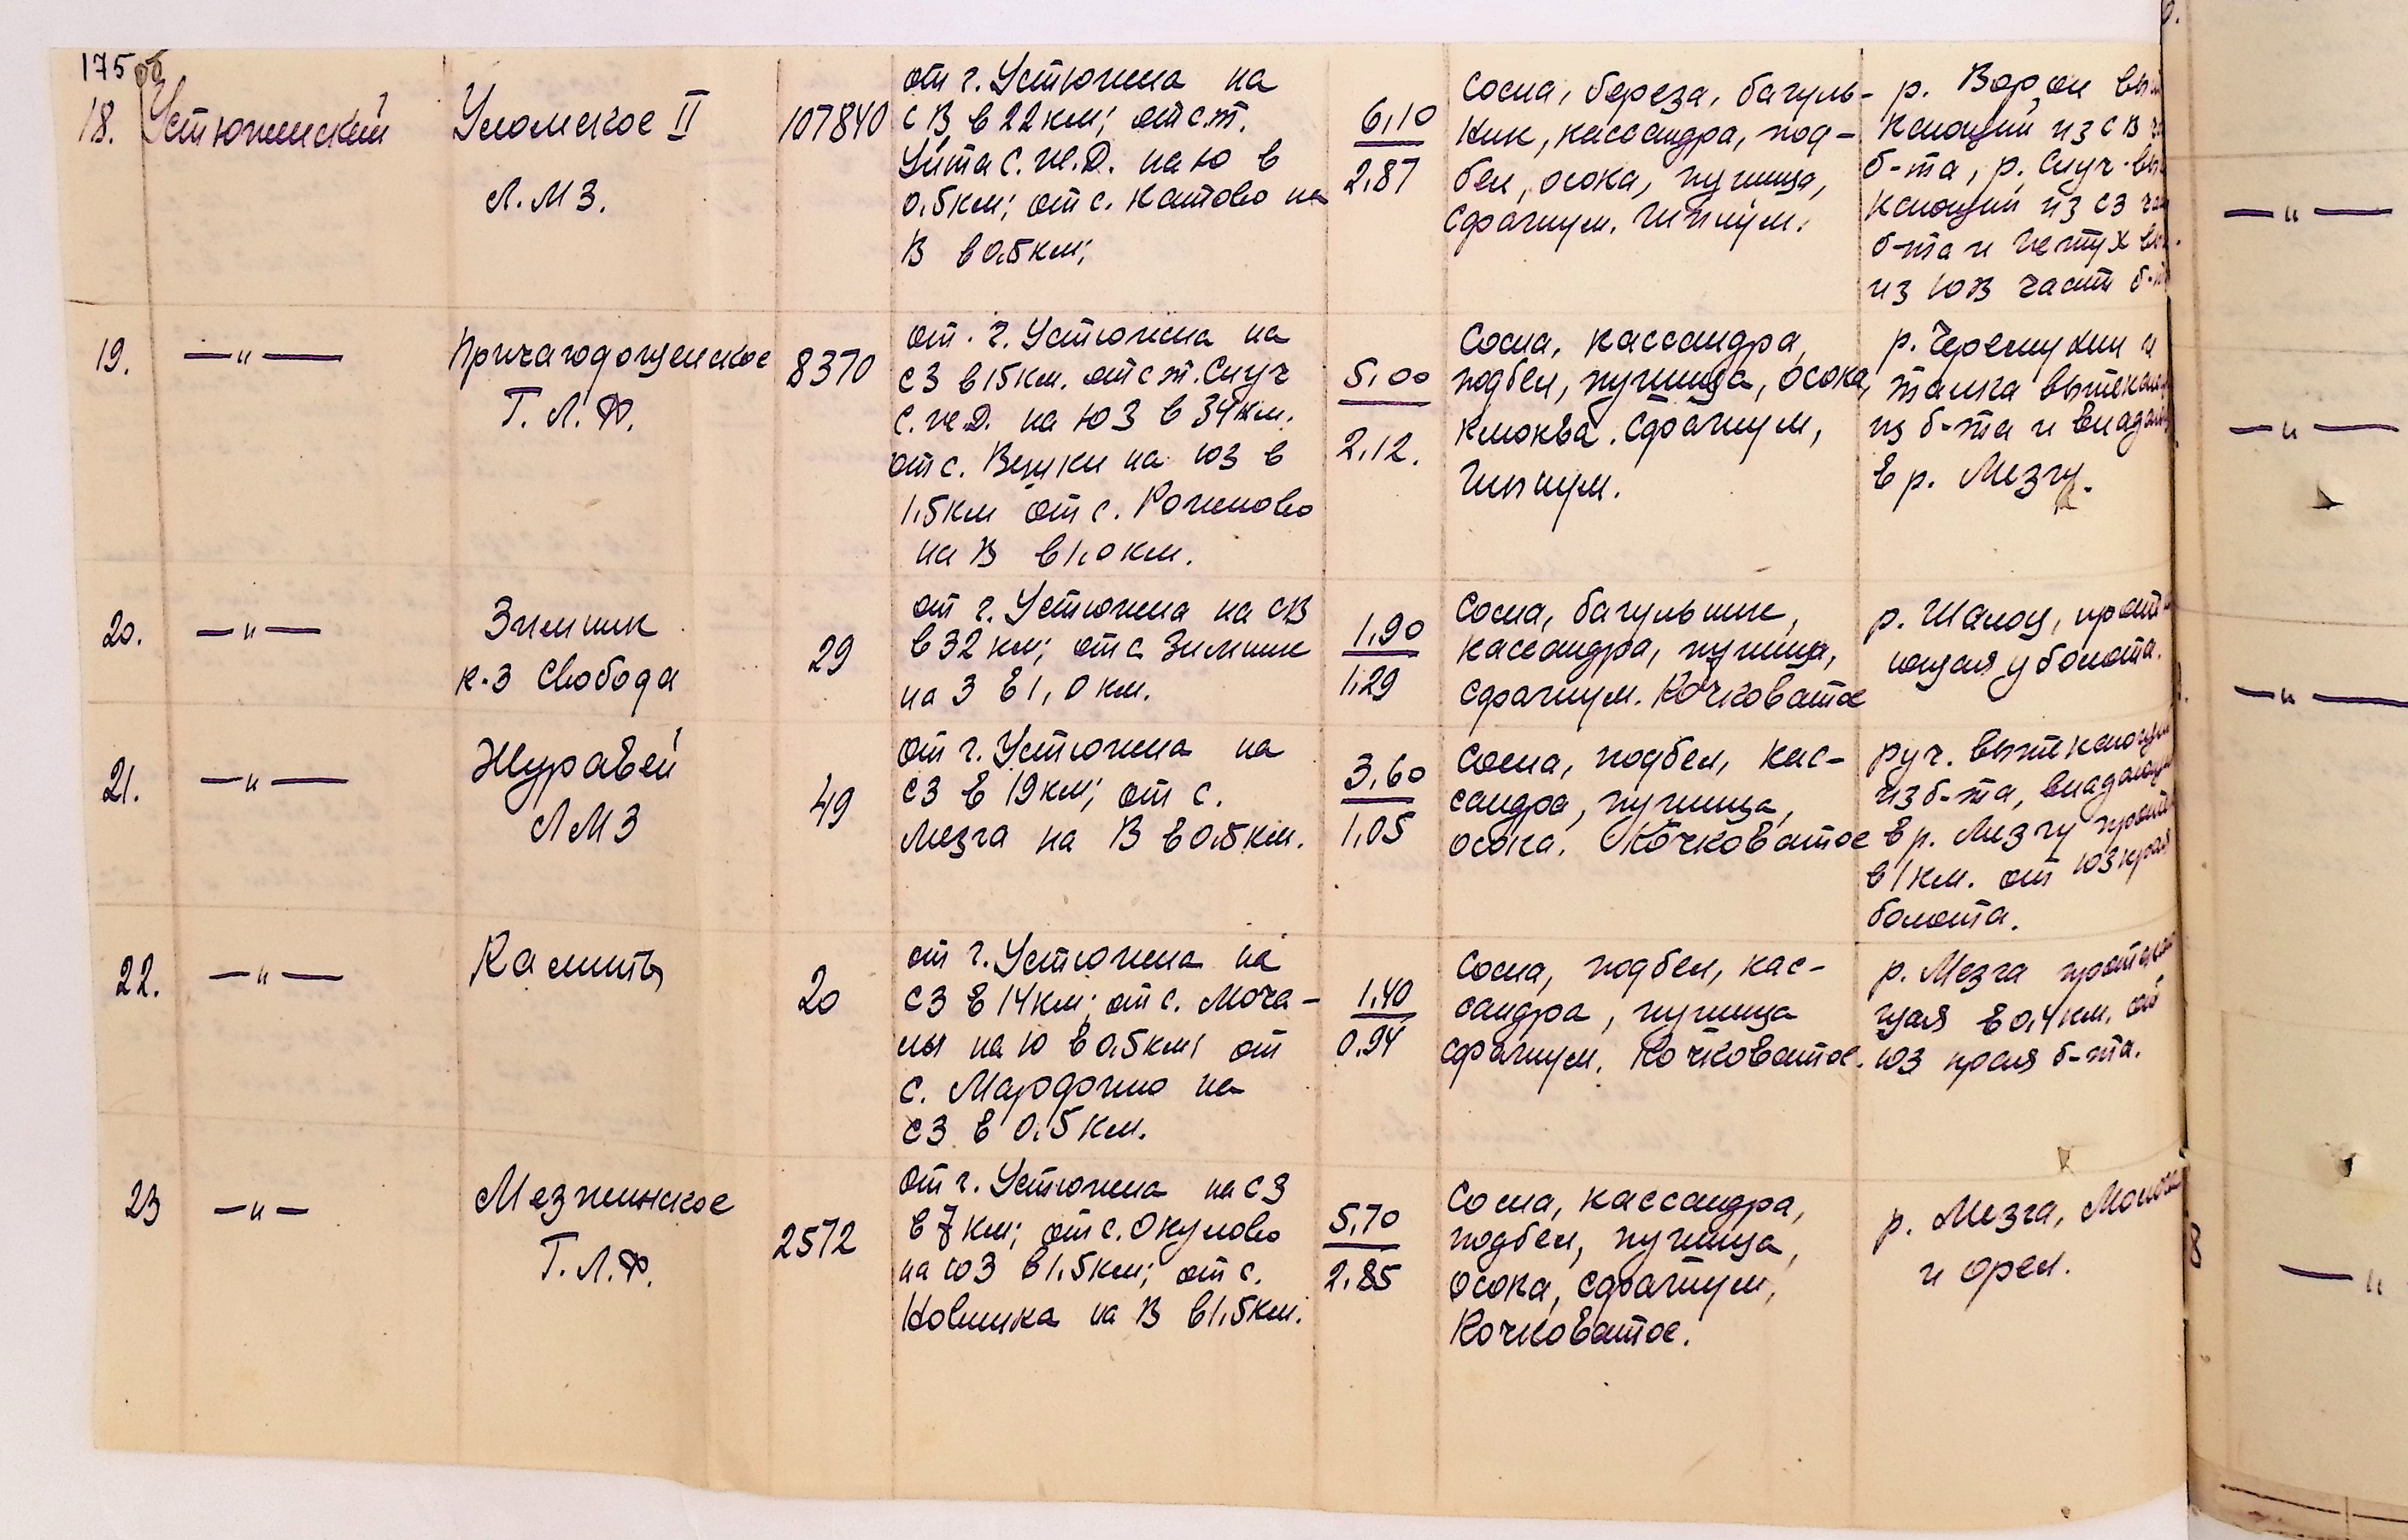 175 об
18. Устюженский
Уломское II
Л.М З.
107840
от г. Устюжна на
С В в 22 км; от ст.
Уйта С. Ж.Д. на Ю в
0,5 км; от с. Катово на
В в 0,5 км;
6,10
2,87
Сосна, береза, багуль-
ник, кассандра, под-
бел, осока, пушица,
Сфагнум. Гипнум.
р. Ворон
из СВ
б-та, р. Снуч
из СЗ
б-та и Петух
из ЮВ части
19. —"—
Причагодощенское
Т. Л. Ф.
8370
от. г. Устюжна на
СЗ в 15 км. от ст. Снуч
С. Ж.Д. на ЮЗ в 34 км.
от с. на ЮЗ в
1,5 км от с. Роженово
на В в 1,0 км.
5,00
2,12.
Сосна, кассандра,
подбел, пушица, осока,
Клюква. Сфагнум,
Гипнум.
р. Черемухин и
из б-та и
в р. Мезгу.
20. —"—
Зимник
к-з Свобода
29
от г. Устюжна на СВ
в 32 км; от с Зимник
на З в 1,0 км.
1,90
1,29
Сосна, багульник,
кассандра, пушица,
сфагнум. Кочковатое
р. Шалоч,
у болота.
21. —"—
Журавей
Л М З
49
от г. Устюжна на
СЗ в 19 км; от с.
Мезга на В в 0,5 км.
3,60
1,05
Сосна, подбел, кас-
сандра, пушица,
осока. Кочковатое
руч. вытекающий
из б-та, впадающий
в р. Мезгу
в 1 км. от ЮЗ края
болота.
22. —"—
20
от г. Устюжна на
СЗ в 14 км; от с. Моча-
лы на Ю в 0,5 км; от
с. Марфочино на
СЗ в 0,5 км.
1,40
0,94
Сосна, подбел, кас-
сандра, пушица
сфагнум. Кочковатое.
р. Мезга протекаю-
щая в 0,4 км. от
ЮЗ края б-та.
23 —"—
Мезженское
Т. Л. Ф.
2572
от г. Устюжна на СЗ
в 7 км; от с. Окулово
на ЮЗ в 1,5 км; от с.
Новинка на В в 1,5 км.
5,70
2,85
Сосна, кассандра,
подбел, пушица,
осока, сфагнум,
Кочковатое.
р. Мезга,
и Орел.
—"—
—"—
—"—
8
—"